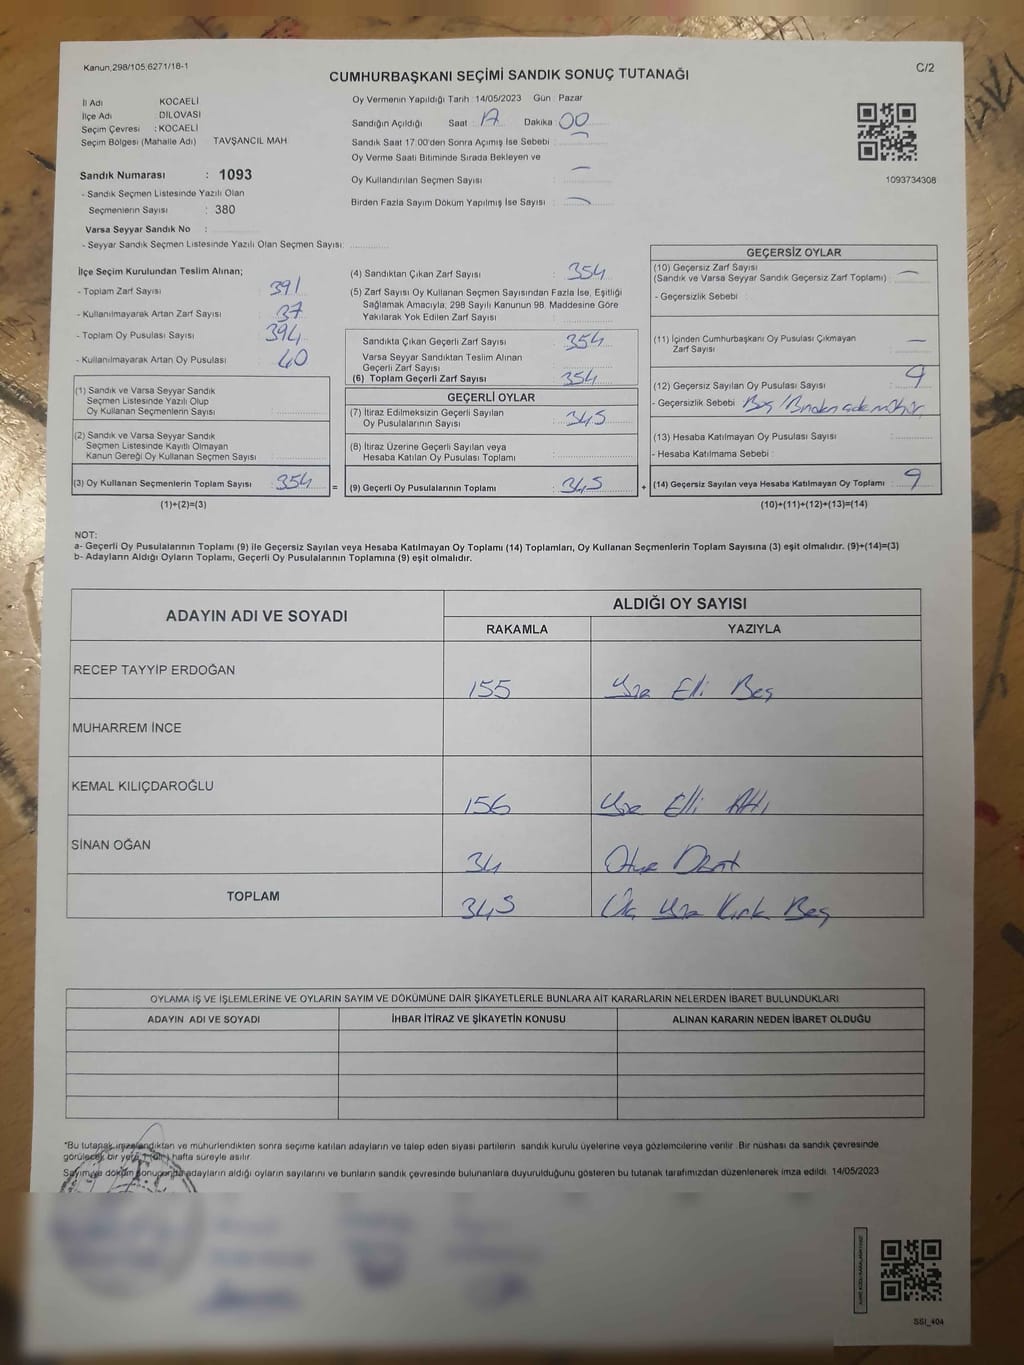 Kanun,298/105,6271/18-1
C/2
CUMHURBAŞKANI SEÇİMİ SANDIK SONUÇ TUTANAĞI
İl Adı KOCAELİ
İlçe Adı DİLOVASI
Seçim Çevresi : KOCAELİ
Seçim Bölgesi (Mahalle Adı) TAVŞANCIL MAH
Oy Vermenin Yapıldığı Tarih : 14/05/2023 Gün : Pazar
Sandığın Açıldığı Saat : Dakika : 00
Sandık Saat 17:00'den Sonra Açımış İse Sebebi :
Oy Verme Saati Bitiminde Sırada Bekleyen ve
Oy Kullandırılan Seçmen Sayısı :
Birden Fazla Sayım Döküm Yapılmış İse Sayısı :
1093734308
Sandık Numarası : 1093
- Sandık Seçmen Listesinde Yazılı Olan
Seçmenlerin Sayısı : 380
Varsa Seyyar Sandık No :
- Seyyar Sandık Seçmen Listesinde Yazılı Olan Seçmen Sayısı:
İlçe Seçim Kurulundan Teslim Alınan;
- Toplam Zarf Sayısı : 391
- Kullanılmayarak Artan Zarf Sayısı : 37
- Toplam Oy Pusulası Sayısı : 394
- Kullanılmayarak Artan Oy Pusulası : 40
(1) Sandık ve Varsa Seyyar Sandık
Seçmen Listesinde Yazılı Olup
Oy Kullanan Seçmenlerin Sayısı :
(2) Sandık ve Varsa Seyyar Sandık
Seçmen Listesinde Kayıtlı Olmayan
Kanun Gereği Oy Kullanan Seçmen Sayısı :
(3) Oy Kullanan Seçmenlerin Toplam Sayısı : 354 =
(1)+(2)=(3)
(4) Sandıktan Çıkan Zarf Sayısı : 354
(5) Zarf Sayısı Oy Kullanan Seçmen Sayısından Fazla İse, Eşitliği
Sağlamak Amacıyla, 298 Sayılı Kanunun 98. Maddesine Göre
Yakılarak Yok Edilen Zarf Sayısı :
Sandıkta Çıkan Geçerli Zarf Sayısı : 354
Varsa Seyyar Sandıktan Teslim Alınan
Geçerli Zarf Sayısı :
(6) Toplam Geçerli Zarf Sayısı : 354
GEÇERLİ OYLAR
(7) İtiraz Edilmeksizin Geçerli Sayılan
Oy Pusulalarının Sayısı : 345
(8) İtiraz Üzerine Geçerli Sayılan veya
Hesaba Katılan Oy Pusulası Toplamı :
(9) Geçerli Oy Pusulalarının Toplamı : 345 +
GEÇERSİZ OYLAR
(10) Geçersiz Zarf Sayısı
(Sandık ve Varsa Seyyar Sandık Geçersiz Zarf Toplamı) :
- Geçersizlik Sebebi :
(11) İçinden Cumhurbaşkanı Oy Pusulası Çıkmayan
Zarf Sayısı :
(12) Geçersiz Sayılan Oy Pusulası Sayısı : 9
- Geçersizlik Sebebi : Boş /
(13) Hesaba Katılmayan Oy Pusulası Sayısı :
- Hesaba Katılmama Sebebi :
(14) Geçersiz Sayılan veya Hesaba Katılmayan Oy Toplamı : 9
(10)+(11)+(12)+(13)=(14)
NOT:
a- Geçerli Oy Pusulalarının Toplamı (9) ile Geçersiz Sayılan veya Hesaba Katılmayan Oy Toplamı (14) Toplamları, Oy Kullanan Seçmenlerin Toplam Sayısına (3) eşit olmalıdır. (9)+(14)=(3)
b- Adayların Aldığı Oyların Toplamı, Geçerli Oy Pusulalarının Toplamına (9) eşit olmalıdır.
ADAYIN ADI VE SOYADI
ALDIĞI OY SAYISI
RAKAMLA YAZIYLA
RECEP TAYYİP ERDOĞAN 155 Yüz Elli Beş
MUHARREM İNCE
KEMAL KILIÇDAROĞLU 156 Yüz Elli Altı
SİNAN OĞAN 34 Otuz Dört
TOPLAM 345 Üç Yüz Kırk Beş
OYLAMA İŞ VE İŞLEMLERİNE VE OYLARIN SAYIM VE DÖKÜMÜNE DAİR ŞİKAYETLERLE BUNLARA AİT KARARLARIN NELERDEN İBARET BULUNDUKLARI
ADAYIN ADI VE SOYADI İHBAR İTİRAZ VE ŞİKAYETİN KONUSU ALINAN KARARIN NEDEN İBARET OLDUĞU
*Bu tutanak imzalandıktan ve mühürlendikten sonra seçime katılan adayların ve talep eden siyasi partilerin sandık kurulu üyelerine veya gözlemcilerine verilir. Bir nüshası da sandık çevresinde
görülecek bir yere 1 (bir) hafta süreyle asılır.
Sayım ve döküm sonucunda adayların aldığı oyların sayılarını ve bunların sandık çevresinde bulunanlara duyurulduğunu gösteren bu tutanak tarafımızdan düzenlenerek imza edildi. 14/05/2023
T.C.
SSI_404